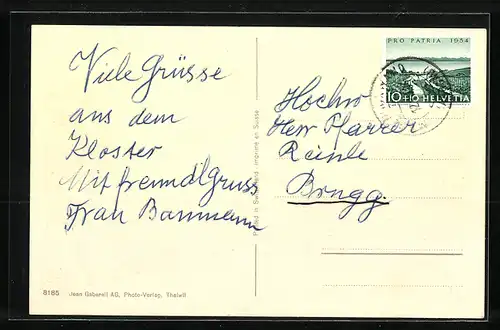 Viele Grüsse
aus dem
Kloster
Mit freundl gruss
Frau Baumann
PRO PATRIA 1954
10+10 HELVETIA
Hochw
Herr Pfarrer
Reinle
Brugg.
Printed in Switzerland Imprimé en Suisse
8185 Jean Gaberell AG, Photo-Verlag, Thalwil